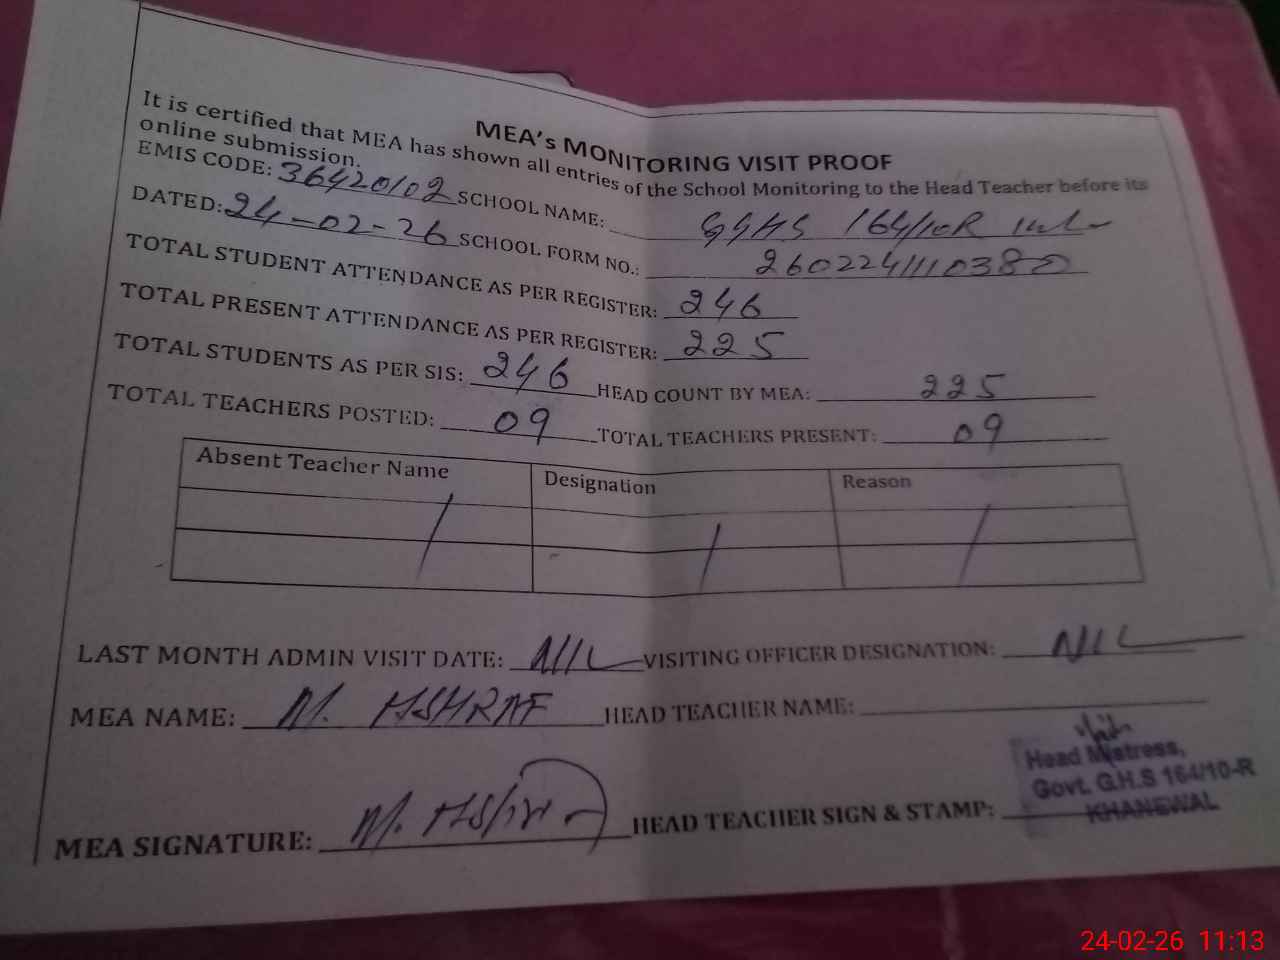 MEA's MONITORING VISIT PROOF
It is certified that MEA has shown all entries of the School Monitoring to the Head Teacher before its
online submission.
EMIS CODE: 36420102 SCHOOL NAME: GGHS 164/10R
DATED: 24-02-26 SCHOOL FORM NO.: 2602241110380
TOTAL STUDENT ATTENDANCE AS PER REGISTER: 246
TOTAL PRESENT ATTENDANCE AS PER REGISTER: 225
TOTAL STUDENTS AS PER SIS: 246 HEAD COUNT BY MEA: 225
TOTAL TEACHERS POSTED: 09 TOTAL TEACHERS PRESENT: 09
Absent Teacher Name Designation Reason
/ / /
LAST MONTH ADMIN VISIT DATE: NIL VISITING OFFICER DESIGNATION: NIL
MEA NAME: M. ASHRAF HEAD TEACHER NAME:
Head Mistress,
Govt. G.H.S 164/10-R
KHANEWAL
MEA SIGNATURE: M. HEAD TEACHER SIGN & STAMP:
24-02-26 11:13